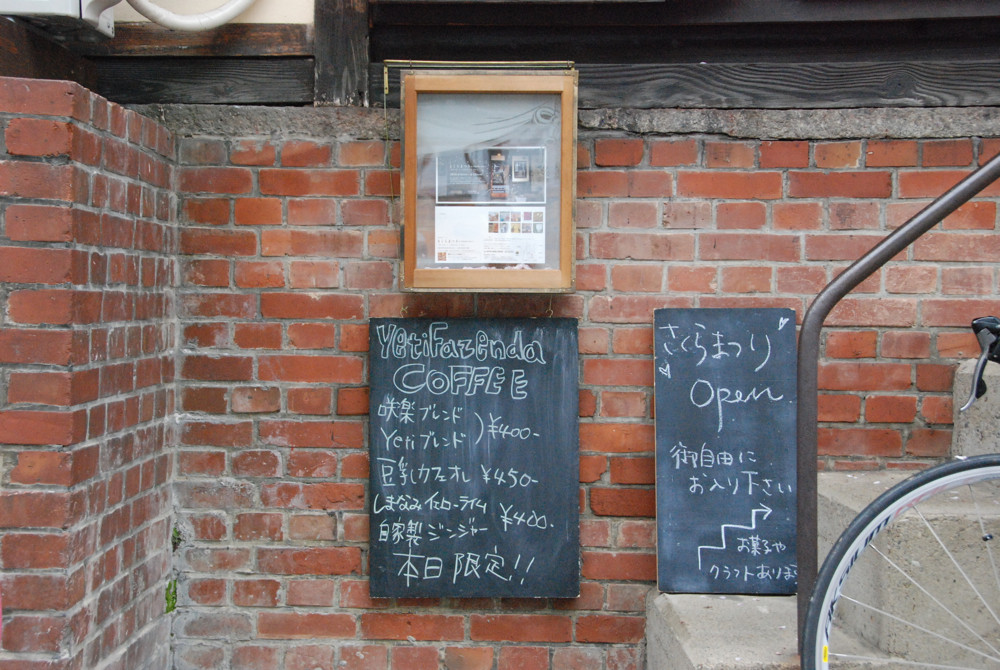 Yeti Fazenda
COFFEE
咲楽ブレンド
Yetiブレンド
¥400-
豆乳カフェオレ ¥450-
しまなみイエローライム
自家製ジンジャー
¥400-
本日限定!!
さくらまつり
Open
御自由に
お入り下さい
お菓子や
クラフトあります